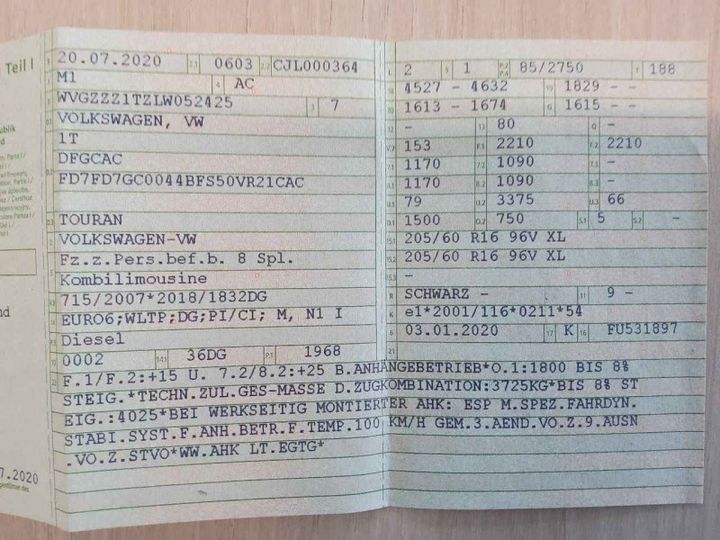 Teil I
20.07.2020 2.1 0603 2.2 CJL000364
M1 4 AC
WVGZZZ1TZLW052425 3 7
VOLKSWAGEN, VW
1T
DFGCAC
FD7FD7GC0044BFS50VR21CAC
TOURAN
VOLKSWAGEN-VW
Fz.z.Pers.bef.b. 8 Spl.
Kombilimousine
715/2007*2018/1832DG
EURO6;WLTP;DG;PI/CI; M, N1 I
Diesel
0002 14.1 36DG P.1 1968
L 2 9 1 P.2 P.4 85/2750 T 188
18 4527 - 4632 19 1829 - -
1613 - 1674 G 1615 - -
12 - 13 80 Q -
V.7 153 F.1 2210 F.2 2210
7.1 1170 7.2 1090 7.3 -
8.1 1170 8.2 1090 8.3 -
U.1 79 U.2 3375 U.3 66
O.1 1500 O.2 750 S.1 5 S.2 -
15.1 205/60 R16 96V XL
15.2 205/60 R16 96V XL
15.3 -
R SCHWARZ - 11 9 -
K e1*2001/116*0211*54
6 03.01.2020 17 K 16 FU531897
21
22 F.1/F.2:+15 U. 7.2/8.2:+25 B.ANHÄNGEBETRIEB*O.1:1800 BIS 8%
STEIG.*TECHN.ZUL.GES-MASSE D.ZUGKOMBINATION:3725KG*BIS 8% ST
EIG.:4025*BEI WERKSEITIG MONTIERTER AHK: ESP M.SPEZ.FAHRDYN.
STABI.SYST.F.ANH.BETR.F.TEMP.100 KM/H GEM.3.AEND.VO.Z.9.AUSN
.VO.Z.STVO*WW.AHK LT.EGTG*
7.2020